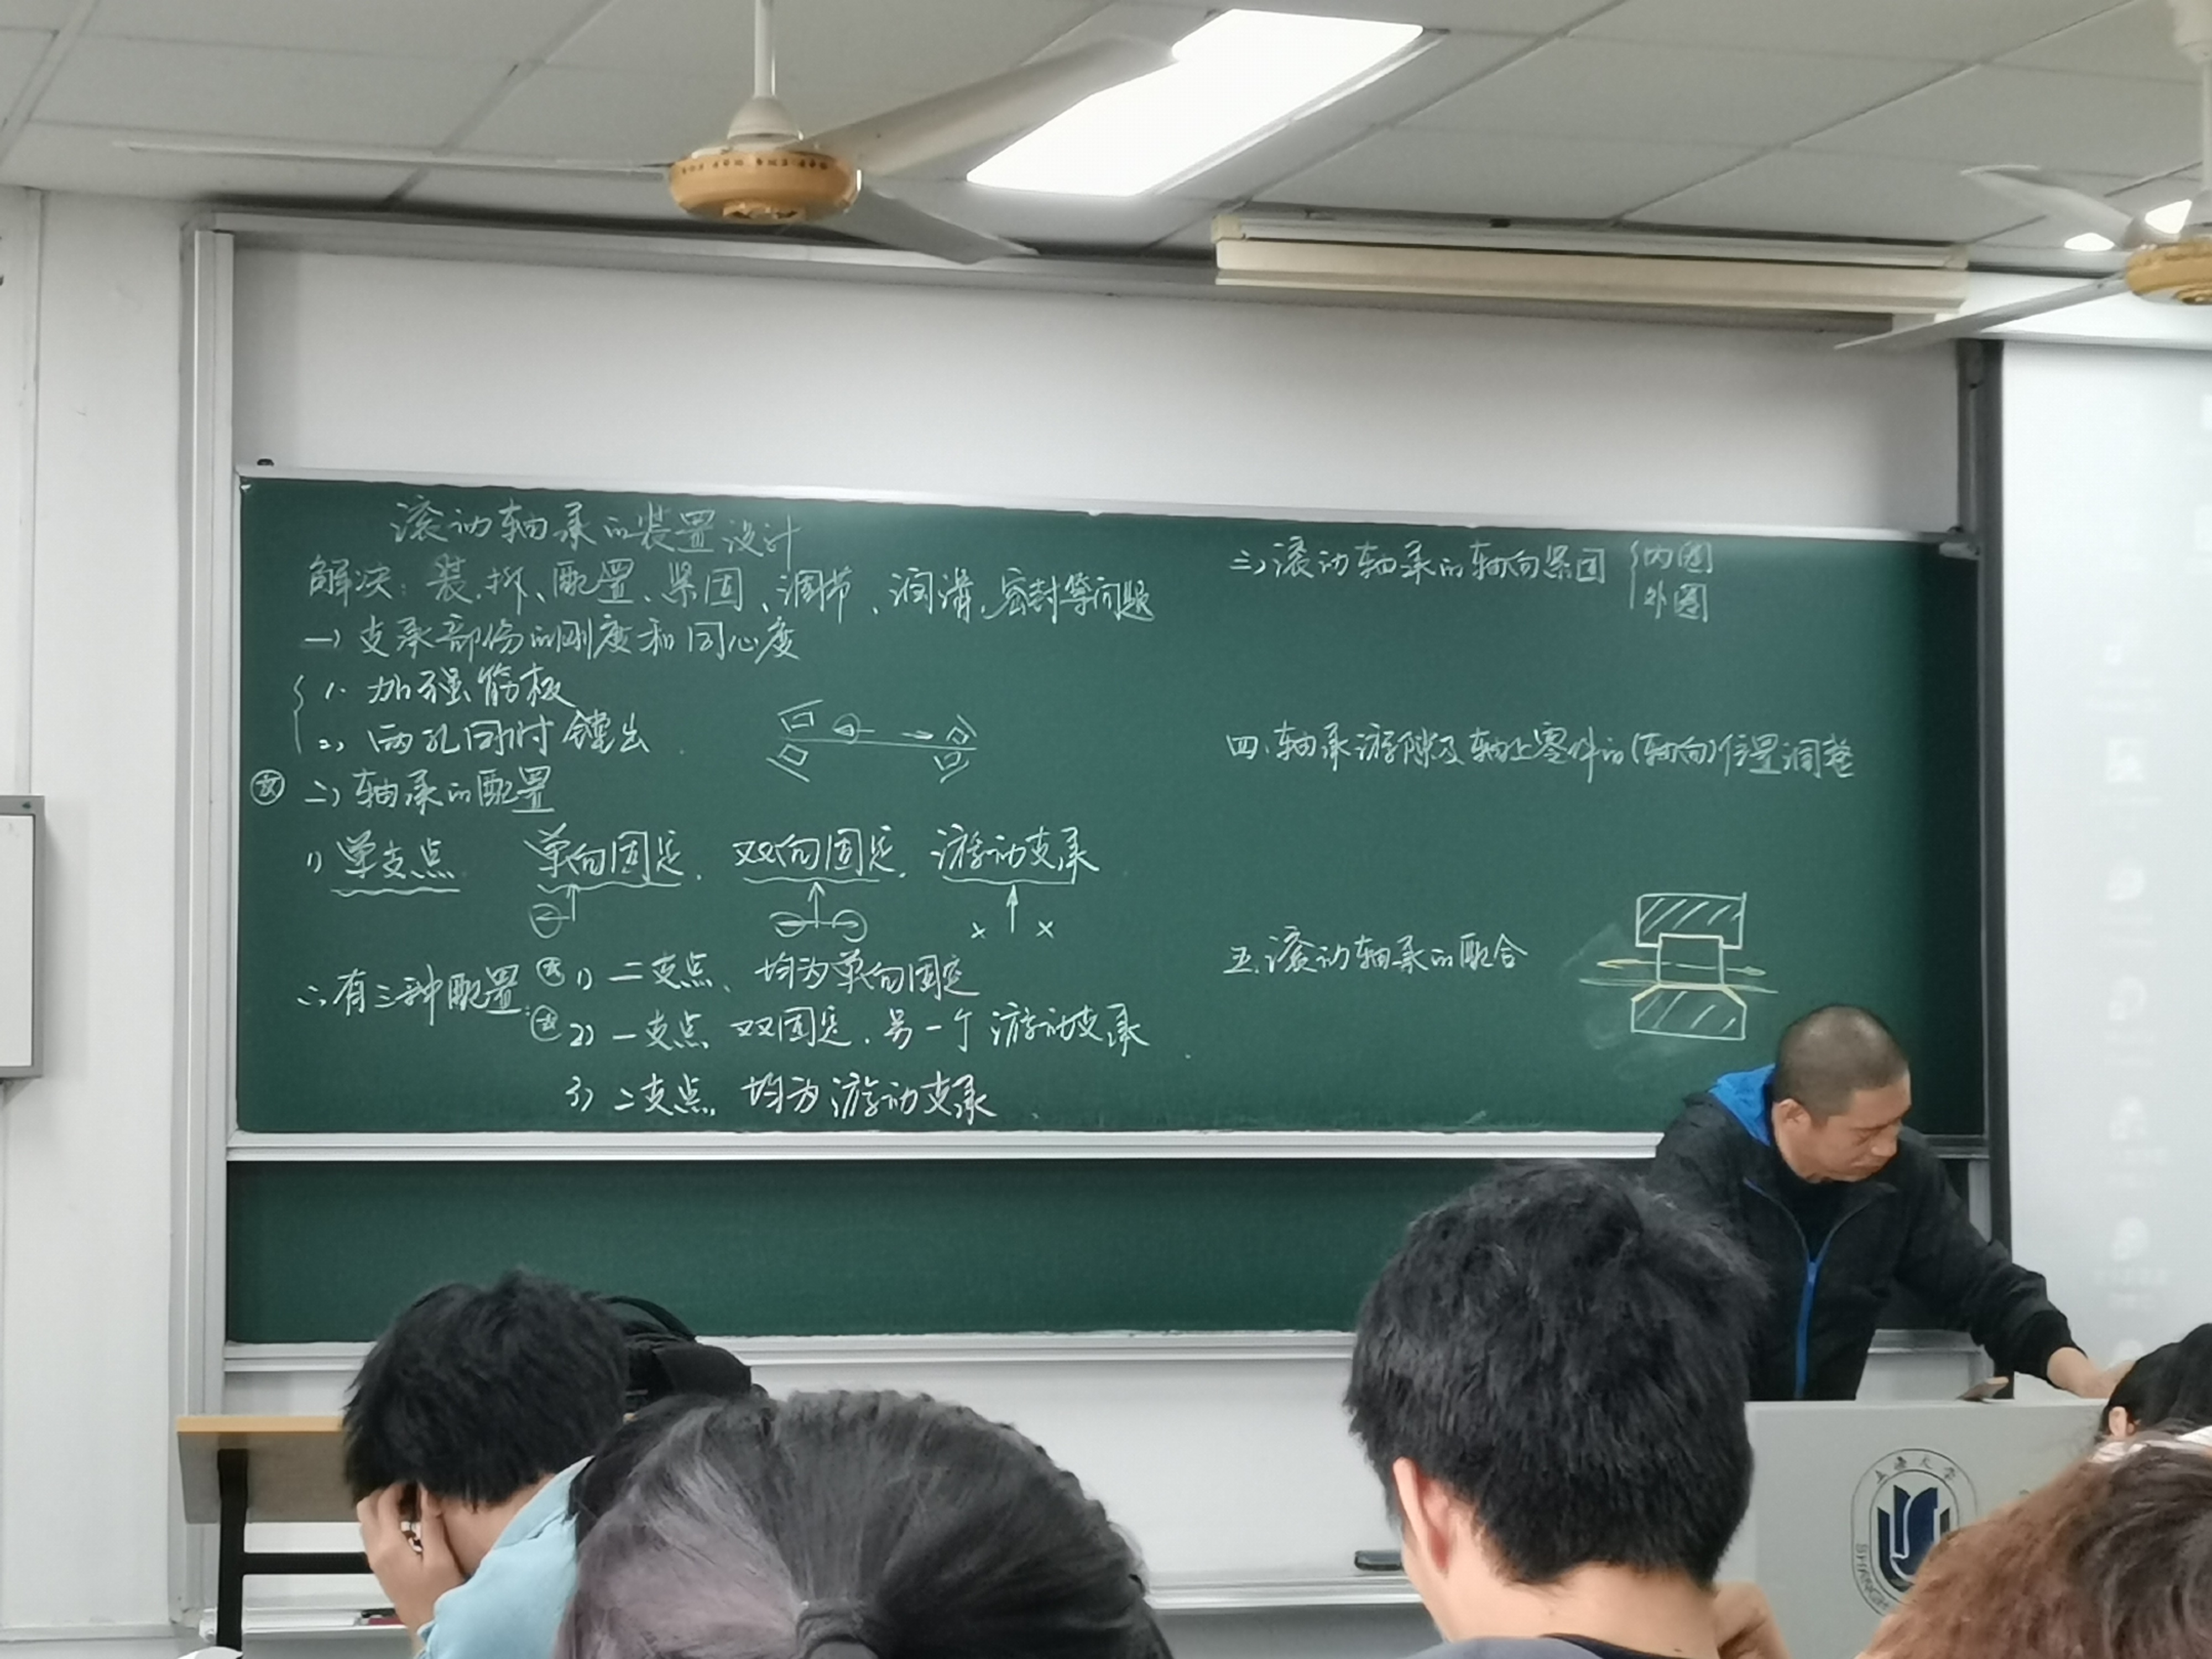 滚动轴承的装置设计
解决：装、拆、配置、紧固、调节、润滑、密封等问题
一）支承部份的刚度和同心度
1. 加强筋板
2. 两孔同时镗出
二）轴承的配置
1）单支点 单向固定、双向固定、游动支承
∴有三种配置：
1）二支点、均为单向固定
2）一支点 双固定，另一个游动支承
3）二支点，均为游动支承
三）滚动轴承的轴向紧固 内圈
外圈
四、轴承游隙及轴上零件的(轴向)位置调整
五、滚动轴承的配合
上海大学